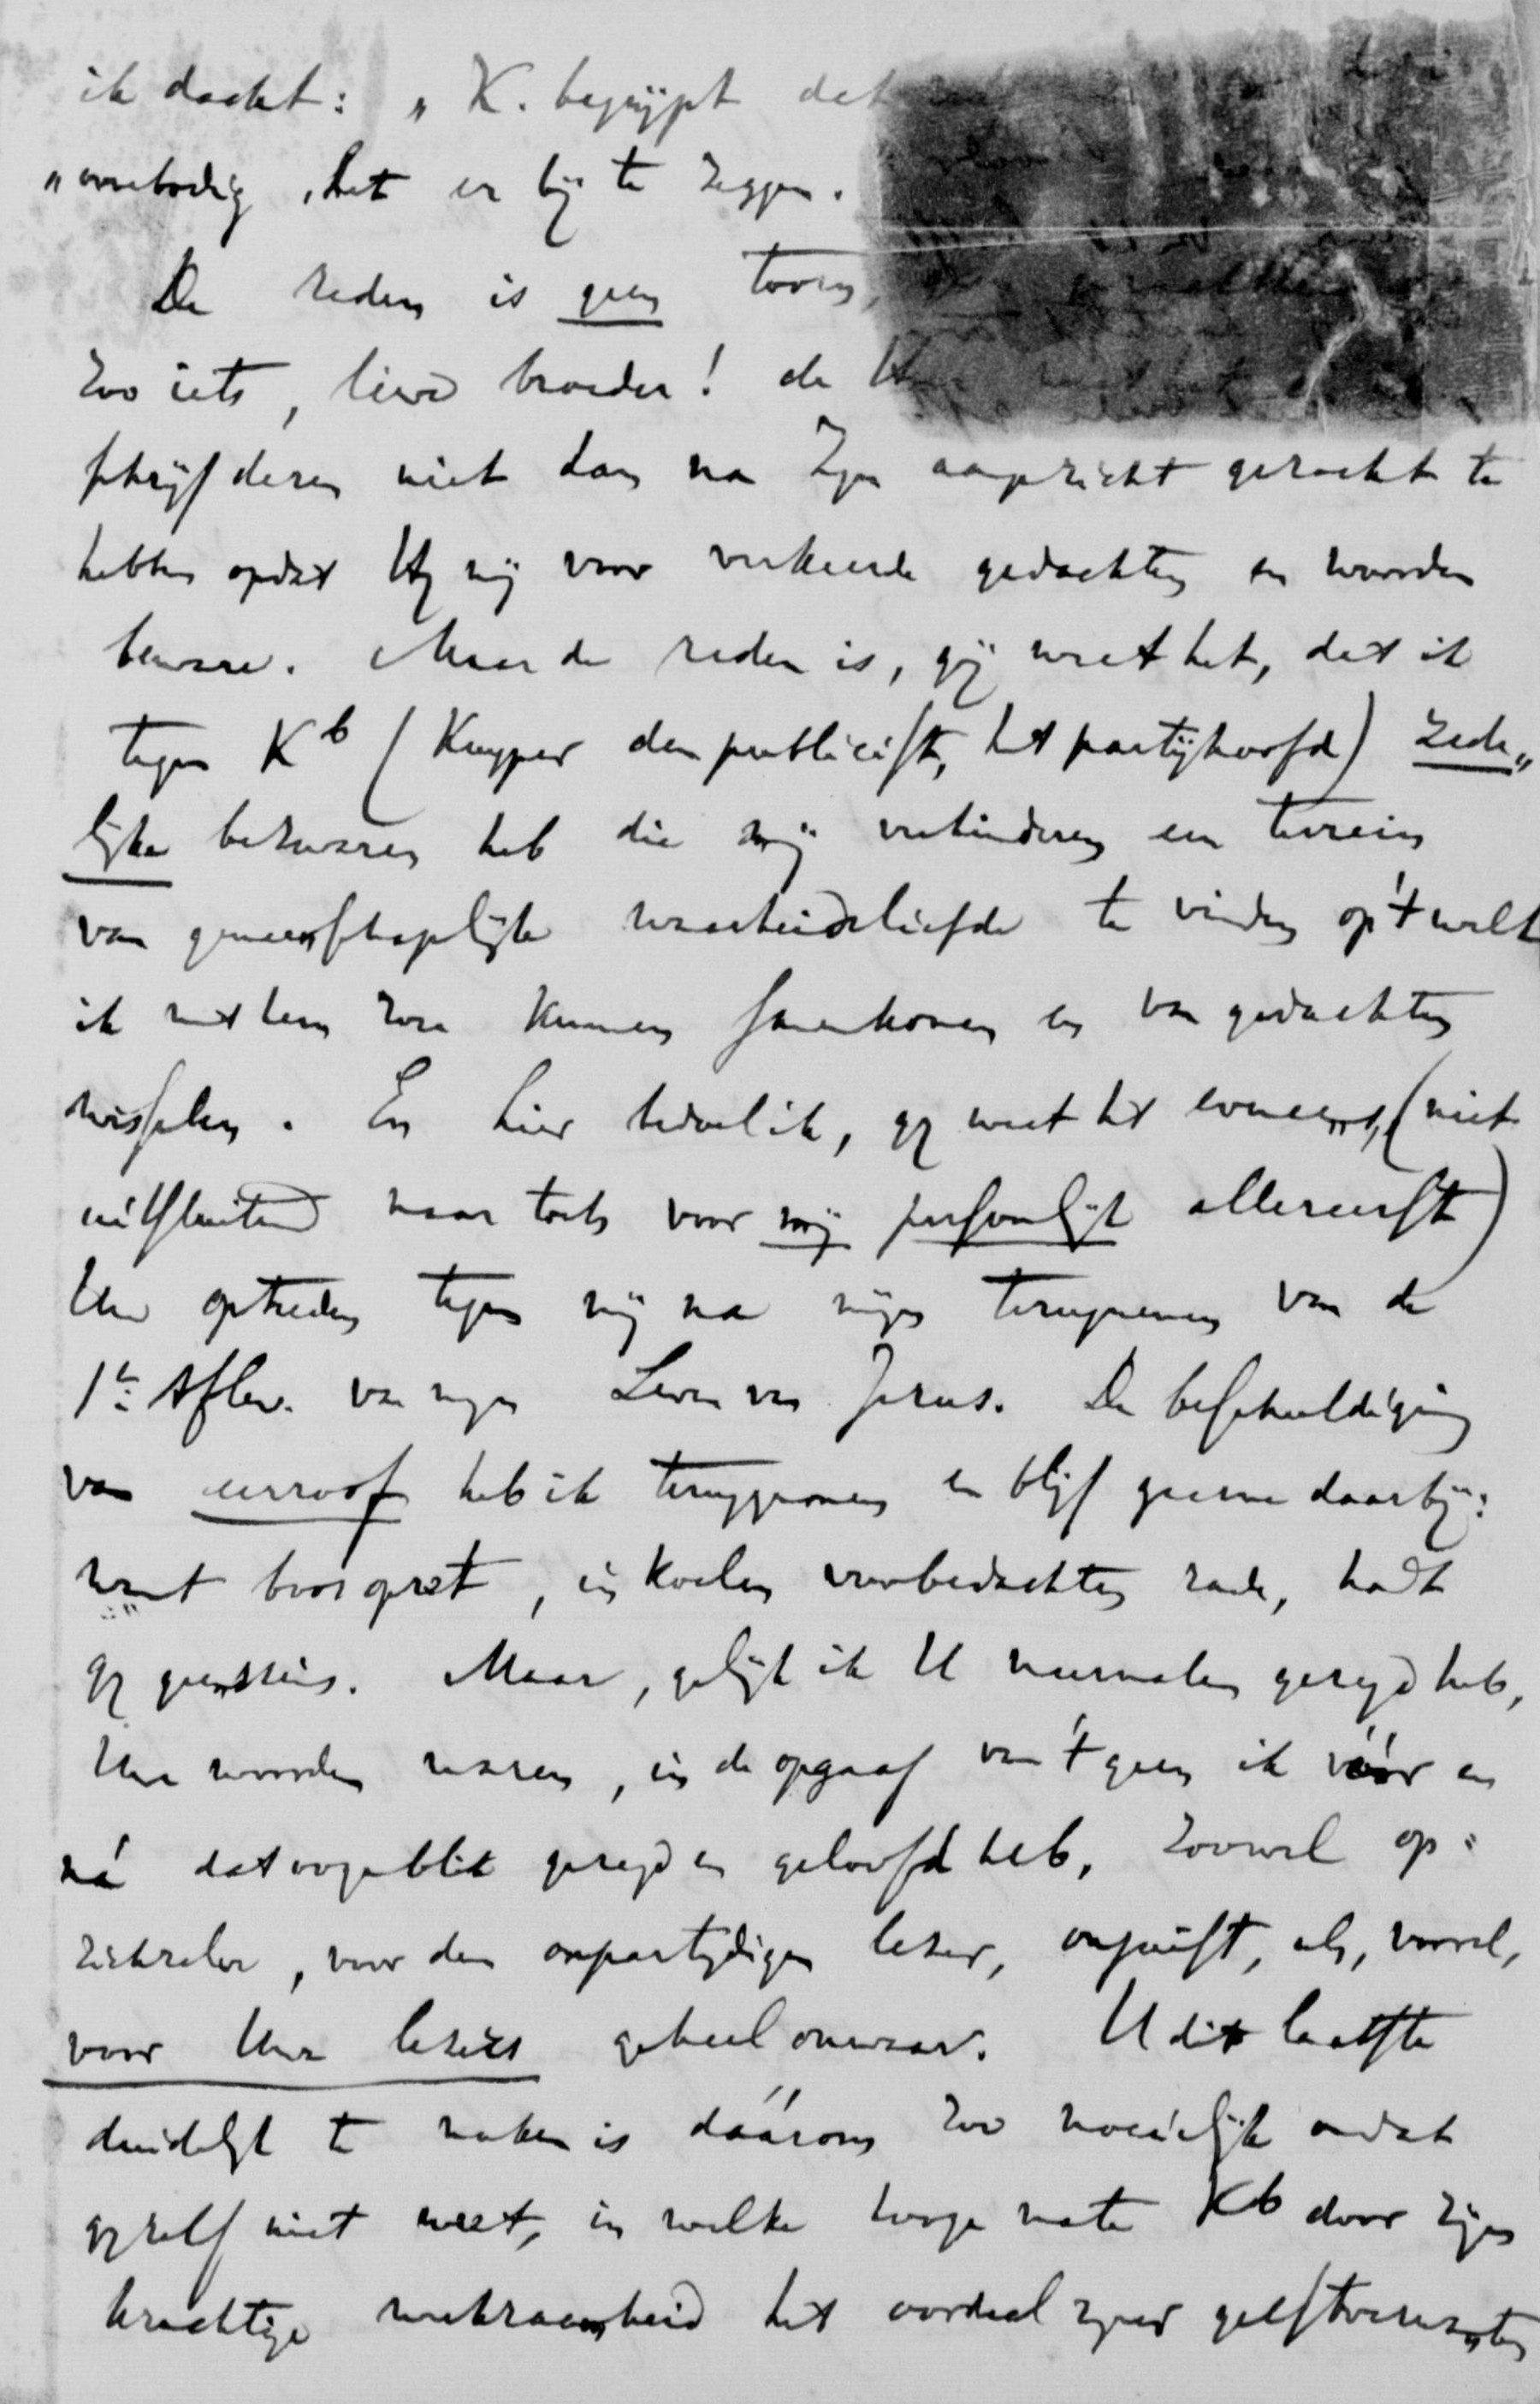 ik dacht: „K. begrijpt dat
„overbodig, het er bij te zeggen.
De reden is geen toorn,
zoo iets, lieve broeder! de
schrijf dezen niet dan na Zijn aangezicht gezocht te
hebben opdat Hij mij voor verkeerde gedachten en woorden
beware. Maar de reden is, gij weet het, dat ik
tegen Kb (Kuyper den publicist, het partijhoofd) zede„
lijke bezwaren heb die mij verhinderen een terrein
van gemeenschaplijke waarheidsliefde te vinden op 't welk
ik met hem zou kunnen samenkomen en van gedachten
wisselen. En hier bedoel ik, gij weet het eveneens, (niet
uitsluitend maar toch voor mij persoonlijk allereerst)
Uw optreden tegen mij na mijn terugnemen van de
1e Aflev. van mijn Leven van Jezus. De beschuldiging
van eerroof heb ik teruggenomen en blijf gaarne daarbij:
want boos opzet, in koelen voorbedachten rade, hadt
gij geenszins. Maar, gelijk ik U meermalen gezegd heb,
Uw woorden waren, in de opgaaf van 't geen ik vóór en
ná dat oogenblik gezegd en geloofd heb, zoowel op
zichzelve, voor den onpartijdigen lezer, onjuist, als, vooral,
voor Uwe lezers geheel onwaar. U dit laatste
duidelijk te maken is dáárom zoo moeielijk omdat
gij zelf niet weet, in welke hooge mate Kb door zijn
krachtige werkzaamheid het oordeel zijner geestverwanten